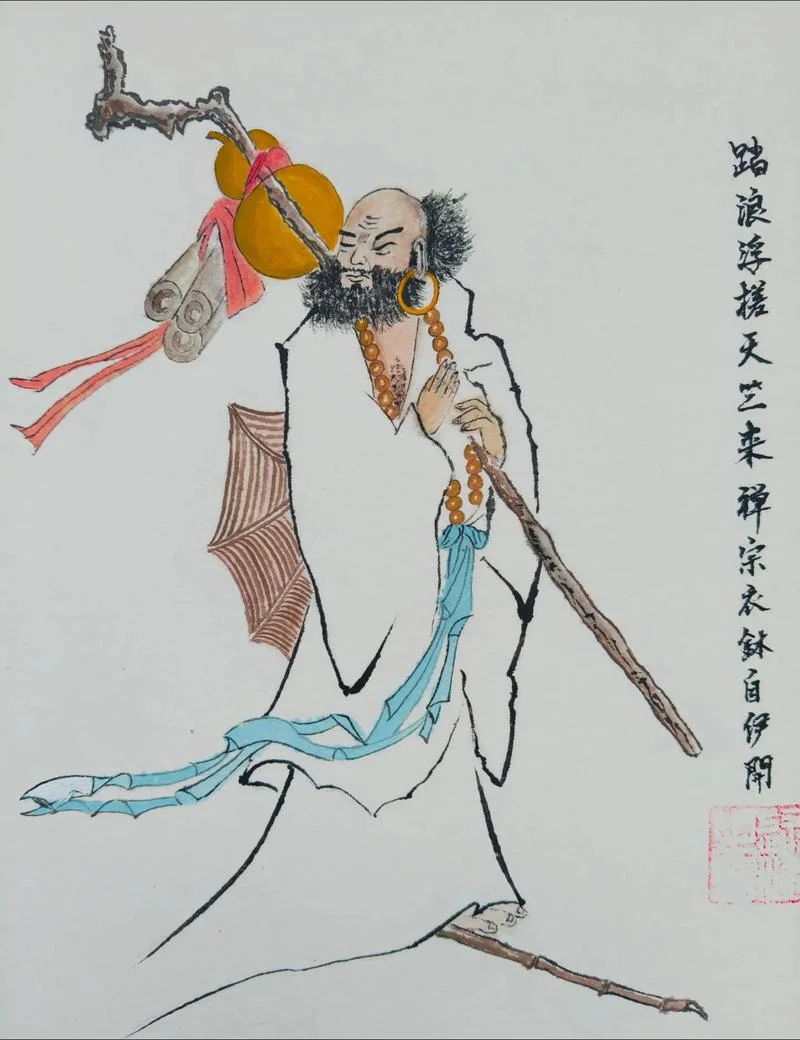 踏浪浮槎天竺来禅宗衣鉢自伊開